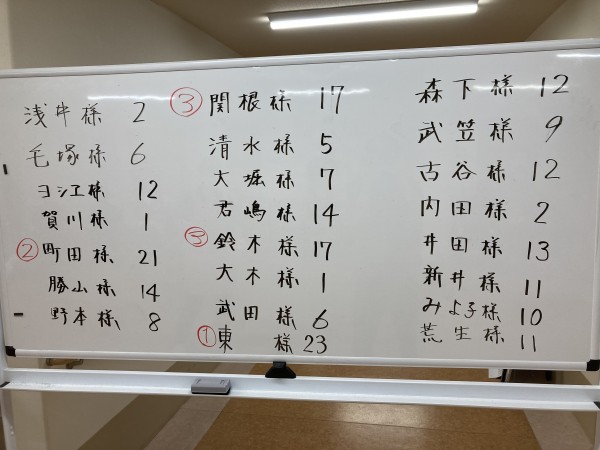 浅井様 2
毛塚様 6
ヨシ江様 12
賀川様 1
②町田様 21
勝山様 14
野本様 8
③関根様 17
清水様 5
大堀様 7
君嶋様 14
③鈴木様 17
大木様 1
武田様 6
①東 様23
森下様 12
武笠様 9
古谷様 12
内田様 2
井田様 13
新井様 11
みよ子様 10
荒生様 11